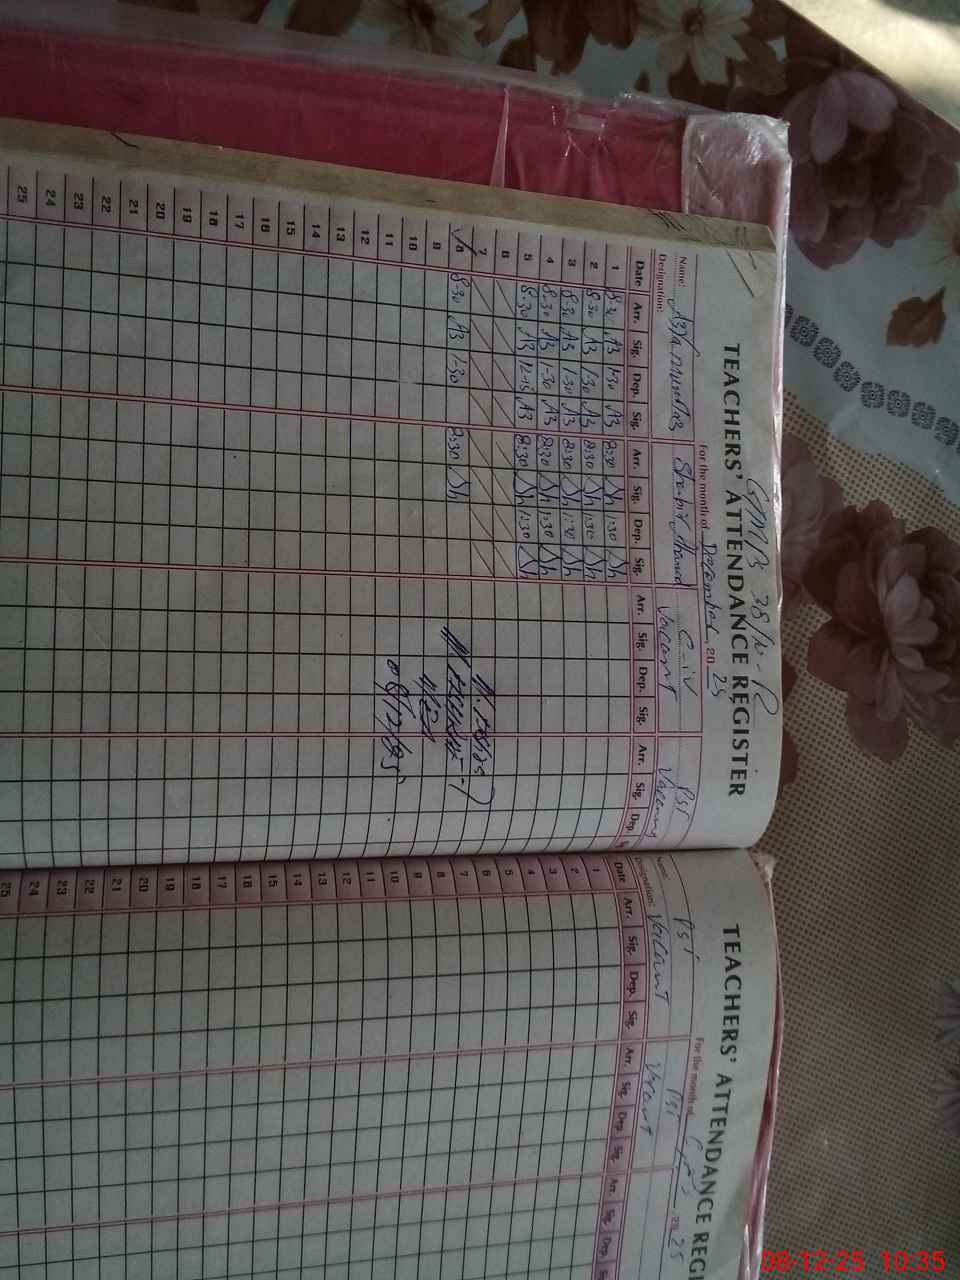 GMPS 38/10-R
TEACHERS' ATTENDANCE REGISTER
For the month of December, 2025
Name:
Designation:
C-IV
Vacant
PST
Date Arr. Sig. Dep. Sig. Arr. Sig. Dep. Sig. Arr. Sig. Dep. Sig. Arr. Sig. Dep.
1 8-30 1-30 8:30 Sh 1:30 Sh
2 8-30 1-30 8:30 Sh 1:30 Sh
3 8-30 1-30 8:30 Sh 1:30 Sh
4 8-30 1-30 8:30 Sh 1:30 Sh
5 8-30 12-15 8:30 Sh 1:30 Sh
6
7
8 8-30 1-30 8:30 Sh
9
10
11
12
13
14
15
16
17
18
19
20
21
22
23
24
25
08/12/25
TEACHERS' ATTENDANCE REGI
For the month of 2025
Name: PST PST
Designation: Vacant Vacant
Date Arr. Sig. Dep. Sig. Arr. Sig. Dep. Sig. Arr. Sig. Dep.
1
2
3
4
5
6
7
8
9
10
11
12
13
14
15
16
17
18
19
20
21
22
23
24
25
08-12-25 10:35